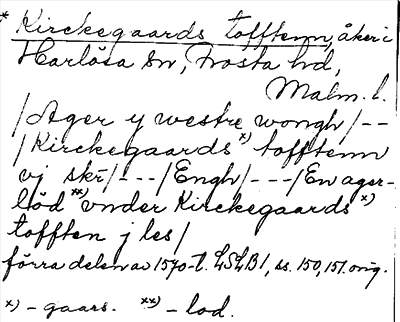 * Kirckegaards tofftenn, åker i
Harlösa sn, Frosta hd,
Malm. l.
/Ager y westre wongh/--
/Kirckegaards x) tofftenn
vj skr/---/Engh/---/En ager-
löd xx) vnder Kirckegaards x)
tofften j les/
förra delen av 1570-t. LSLB1, ss. 150, 151. orig.
x) - gaars. xx) - lod.